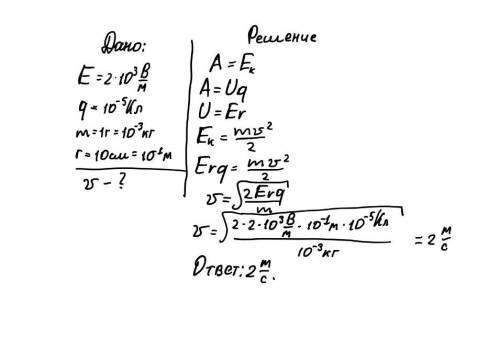 Дано:
E = 2·10³ В/м
q = 10⁻⁵ Кл
m = 1г = 10⁻³ кг
r = 10см = 10⁻¹ м
v - ?
Решение
A = Eк
A = Uq
U = Er
Eк = mv²/2
Erq = mv²/2
v = √(2Erq/m)
v = √(2·2·10³ В/м · 10⁻¹м · 10⁻⁵ Кл / 10⁻³ кг) = 2 м/с
Ответ: 2 м/с.